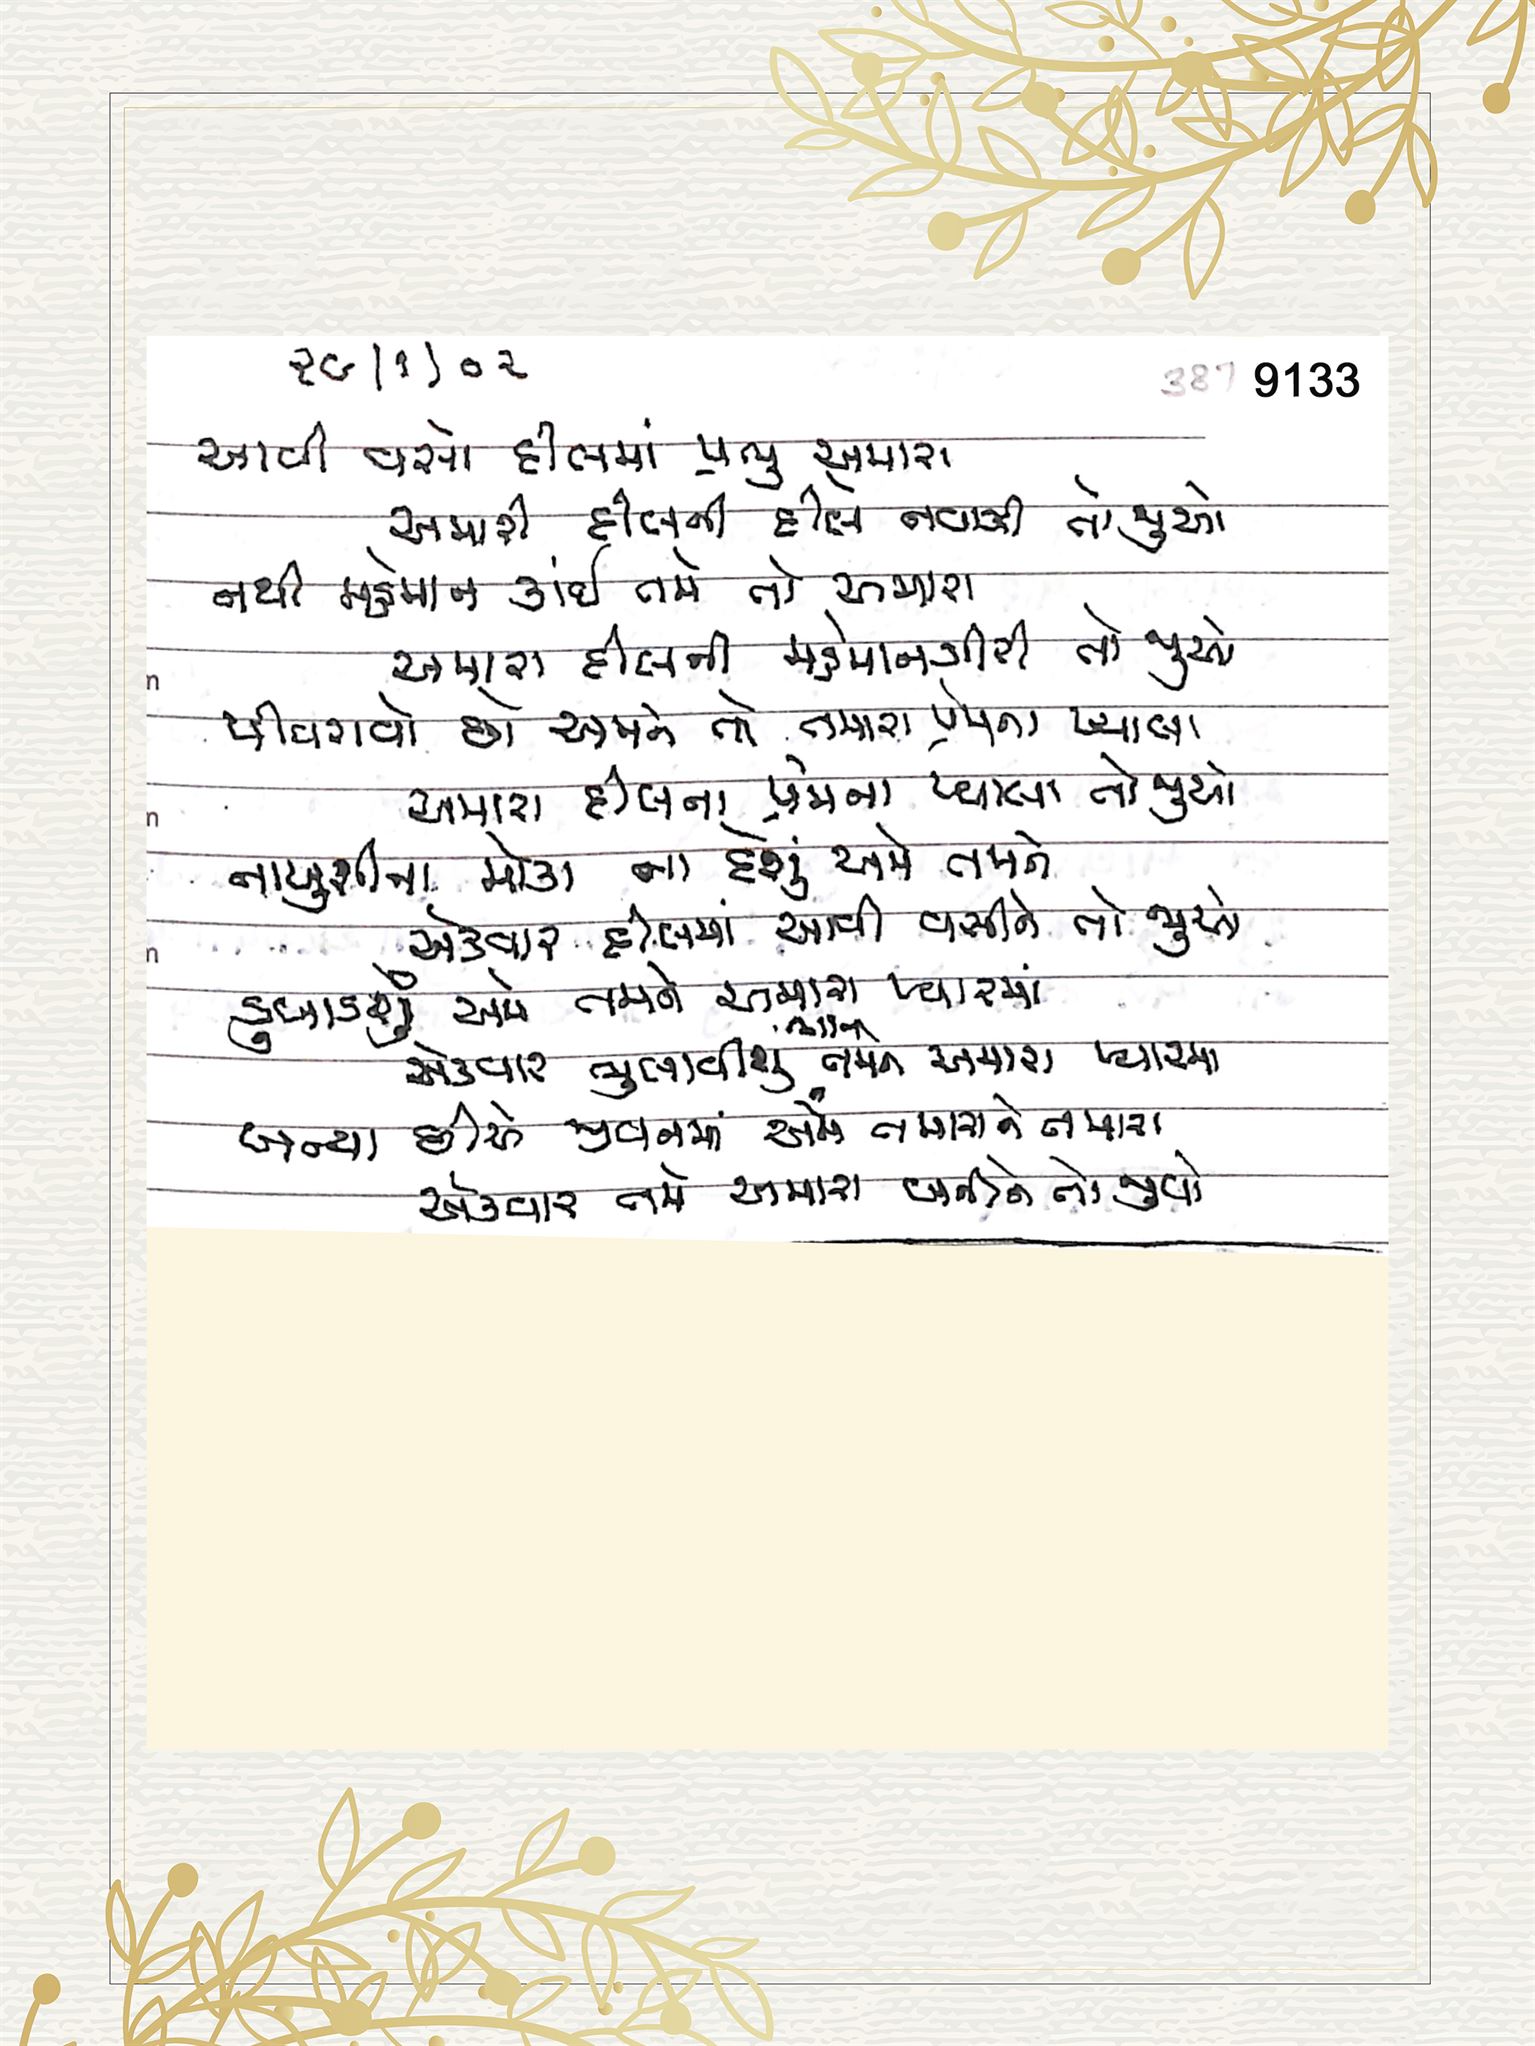 ૨૯/૧/૦૨
387 9133
આવી વસો દીલમાં પ્રભુ અમારા
અમારી દીલની દીલે નવાજી તો જુઓ
નથી મહેમાન કાંઈ તમે તો અમારા
અમારા દીલની મહેમાનગીરી તો જુઓ
પીવરાવો છો અમને તો તમારા પ્રેમના પ્યાલા
અમારા દીલના પ્રેમના પ્યાલા તો જુઓ
નાખુશીના મોકા ના દેશું અમે તમને
એકવાર દીલમાં આવી વસીને તો જુઓ
ડુબાડશું અમે તમને અમારા પ્યારમાં
ભાન
એકવાર ભુલાવીશુ તમને અમારા પ્યારમા
બન્યા છીએ જીવનમાં અમે તમારાને તમારા
એકવાર તમે અમારા બનીને તો જુવો